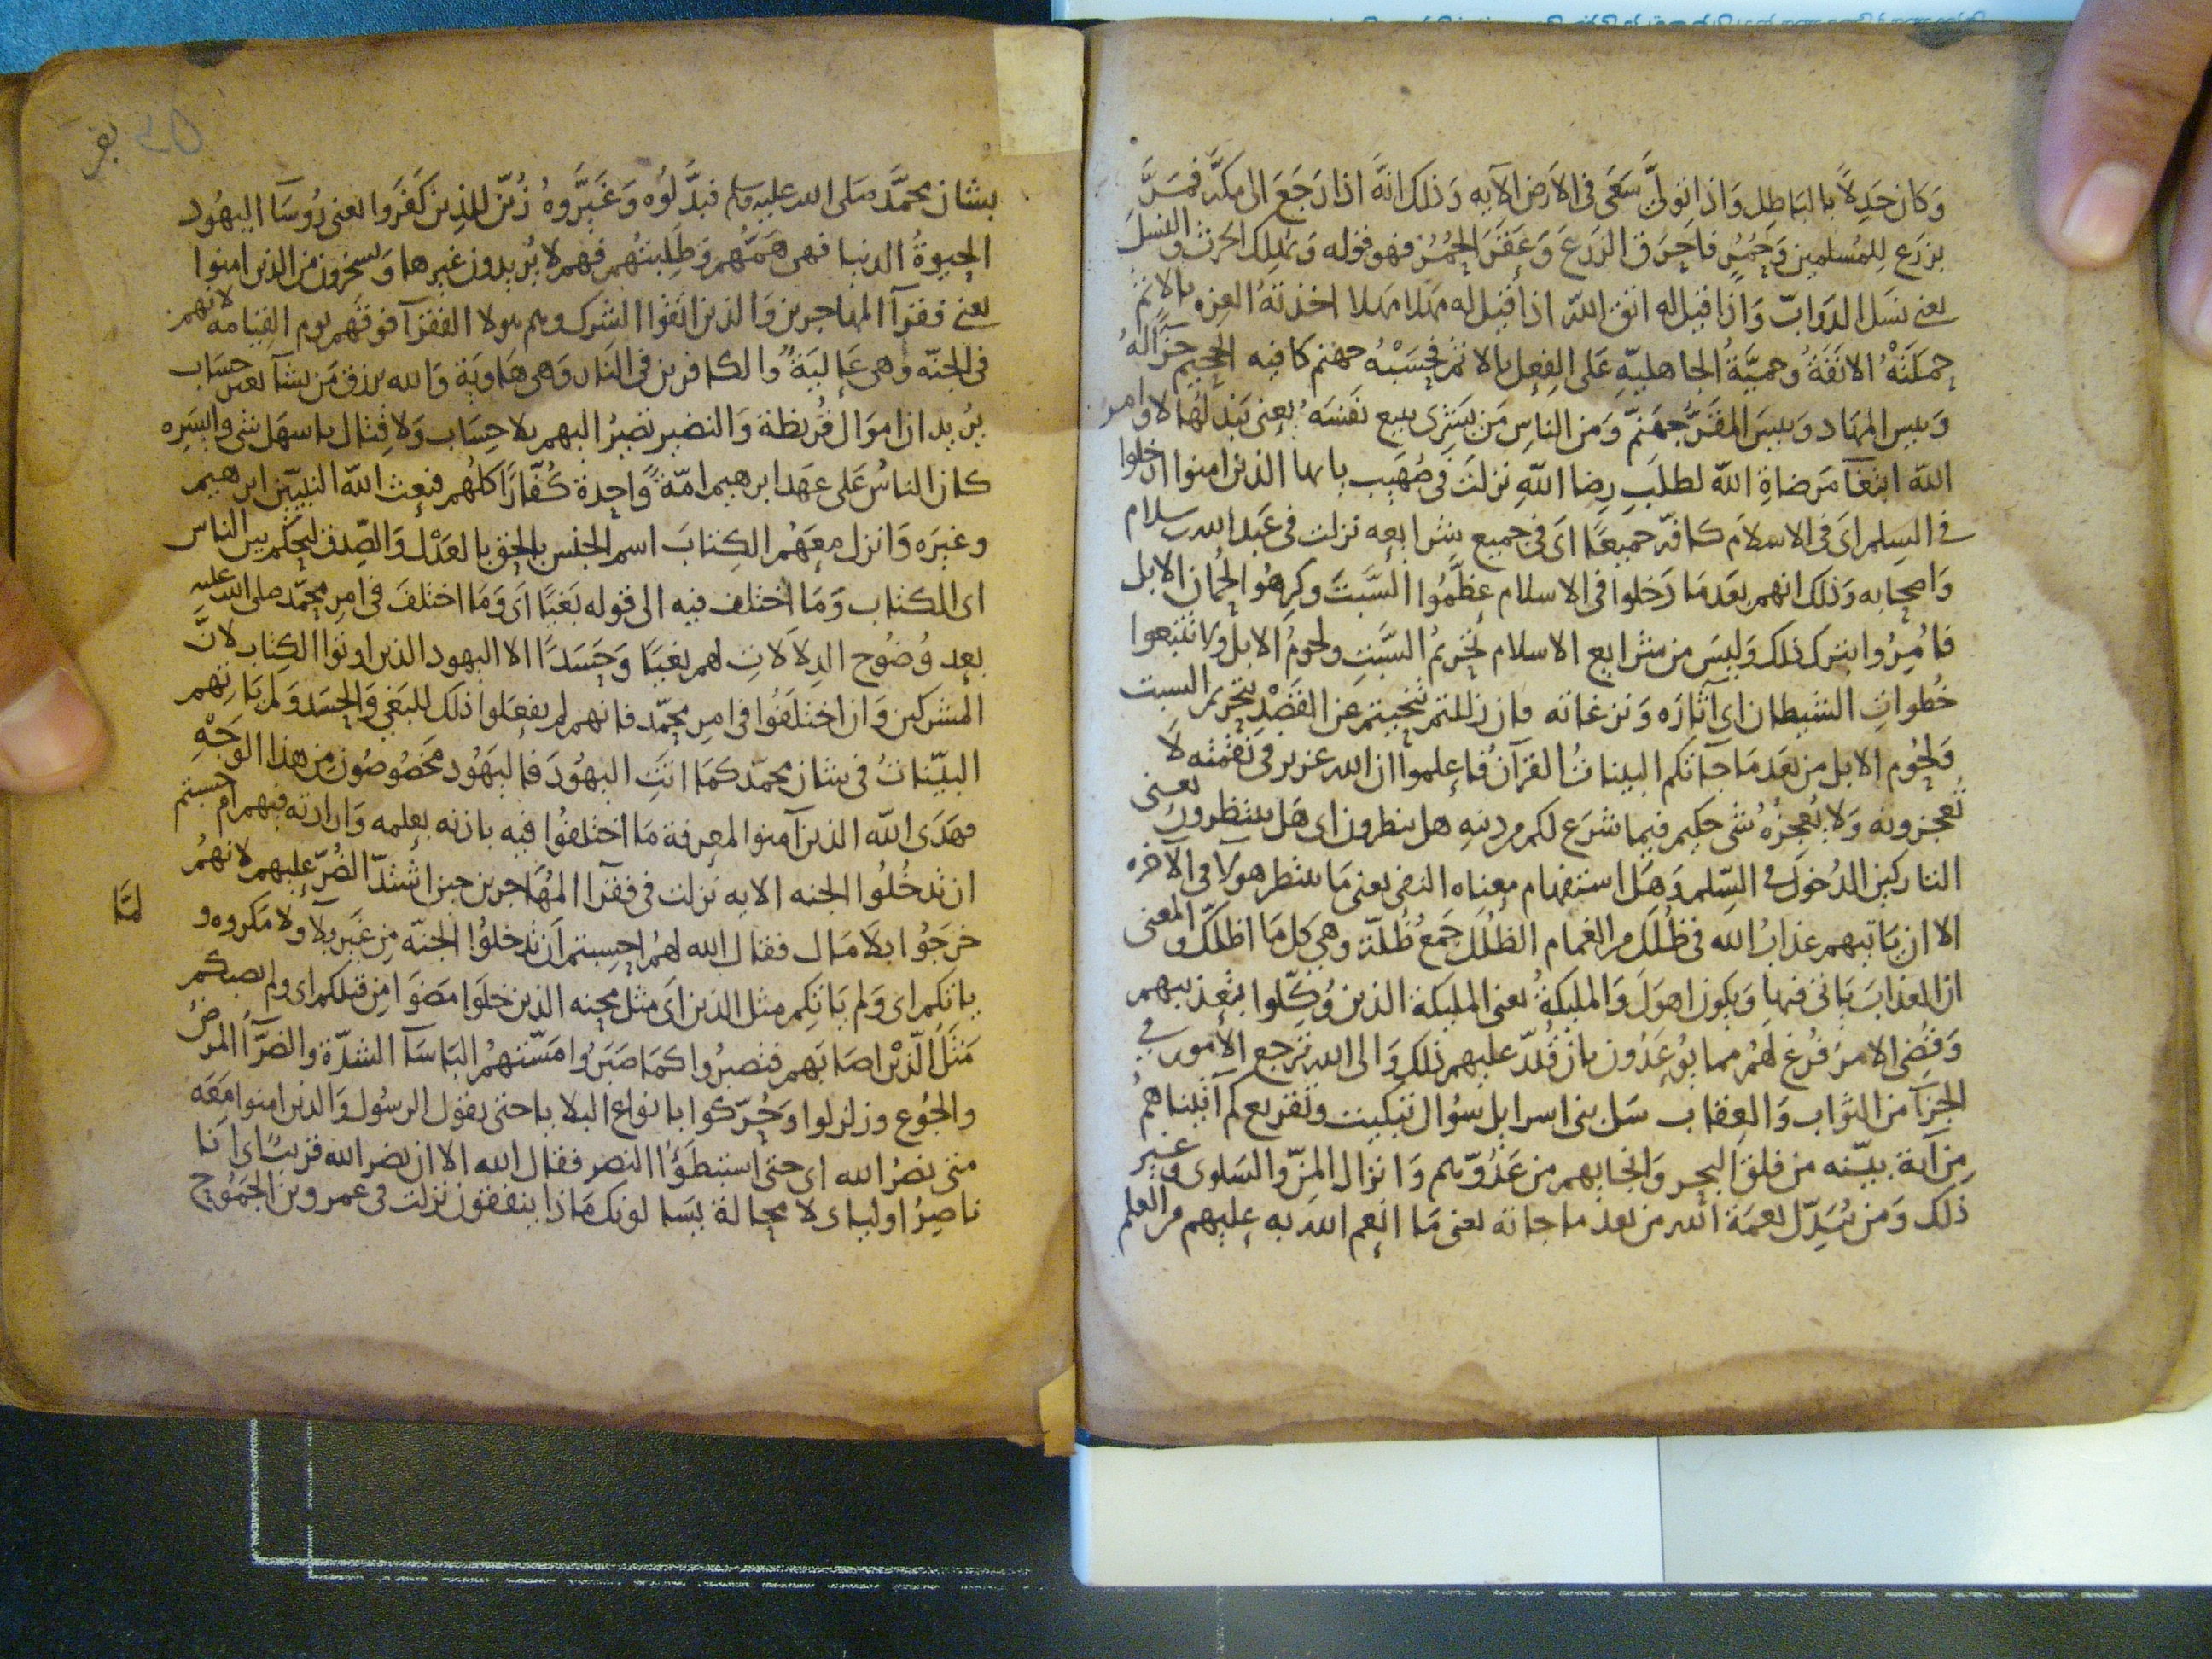 وَكان جَدِلاً بالباطل وَاذا تولىَّ سَعَى فى الارض الآيه وَذلك انَّه اذا رَجَعَ الى مكّة فمَرَّ
بزَرعٍ لِلمُسلمين وَحُمُرٍ فاحرَق الزرعَ وَعَقَرَ الحُمُرَ فهو قوله وَيُهلِك الحرث والنسل
يعنى نسَل الدوابّ وَاذا قيل له اتق اللّه اذا قيل له مهلا مهلا اخذته العِزه بالاثم
حملَتْهُ الانفَةُ وحميَّةُ الجاهليّه عَلى الفِعل بالاثم فحَسْبُه جهنم كافيه الجحيم جزآً لهُ
وَبيس المِهاد وَبيسَ المقرُّ جهنّم وَمن الناس مَن يَشرى يبيع نَفسَه يعنى يَبذلها لاوامر
اللّه ابتغآ مَرضاةِ اللّه لطلَبِ رِضا اللّهِ نزلَت فى صُهَيب ياايها الذين امنوا ادخلوا
فى السِلم اىَ فى الاسلام كافّه جميعًا اىَ فى جميع شرايعه نزلت فى عَبد اللّه بن سلام
وَاصحابه وَذلك انهم بعدَ مَا دَخلوا فى الاسلام عظَّمُوا السَّبتَ وكرِهُوا لُحمان الابل
فامُِرُوا بترك ذلك وَليسَ من شرايع الاسلام تحريمُ السَّبتِ ولحومُ الابل ولا تتبعوا
خُطواتِ الشيطان اى آثارَه وَنزغاتَه فان زللتم تنحيتم عن القَصْدِ بتحريم السبت
وَلحُومِ الابل من بعَدَ مَا جآتكم البينات القرآن فاعلموا ان اللّه عزيز فى نقمته لَا
تُعجزونه وَلا يُعجزُهُ شى حكيم فيما شَرَع لكم مردينهِ هل ينظرون اى هَل ينتظرون يعنى
التاركينَ الدُخولَ فى السِّلم وَهَل استفهام معناه النفى يعنى مَا ينتظر هولآ فى الآخره
الا ان يَاتيهم عذابُ الله فى ظُلَل من الغمام الظُلَل جَمعُ ظُلّة وهى كل مَا اظلّك والمعنى
ان العذابَ يَاتى فيها وَيكون اهوَلَ وَالمليكةُ يعنى المليكة الذين وُكِّلوا بتعذيبهم
وَقُضِى الامرُ فُرِغ لَهُمْ مما يوُعَدُون بان قُدّر عليهم ذلك وَالى اللّه تُرجع الامور فى
الجزآ من الثواب وَالعِقاب سَل بنى اسرايل سؤال تبكيت وتقريع كم آتيناهُم
مِن آية بيّنه من فلق البحر وَانجايهم من عَدُوّهم وَانزال المنّ والسَلوى وغير
ذلك وَمن يُبَدِّل نعمَة اللّه من بعد ما جاته يعنى مَا انعم اللّه به عليهم من العلم
بقر
٤٥
بشان محمَّد صلى الله عليه وسلم فبَدَّلوُه وَغَيَّروهُ زُيّن للذين كَفَروا يعنى رُوسَآ اليهُود
الحيوةُ الدنيا فهى هَمَّهُم وَطَلِبتُهم فهم لا يُريدون غيرها وَيسخرون من الذين امنوا
يعنى فقرآ المهاجرين وَالذين اتقوا الشرك وهم هولا الفقرآ فوقهم يوم القيامة لانهم
فى الجنّه وَهى عَاليَةٌ والكافرين فى النار وَهى هَاويَة وَالله يرزق مَن يشآ بغير حسَاب
يُريد ان اموَال قُريظة وَالنضير تصيرُ اليهم بلا حِسَاب وَلا قِتال باسهَل شى وايسَرِه
كان الناسُ عَلى عهد ابرهيم امّةً وَاحِدة كُفّارًا كلهُم فبعث اللّه النبيين ابرهيم
وغيرَه وَانزل معَهُم الكِتابَ اسم الجنس بالحق بالعَدْل وَالصِّدق ليحكم بين الناس
اى الكتاب وَمَا اختلف فيه الى قوله بَغيًا اىَ وَمَا اختلفَ فى امرِ محمّد صلى الله عليه
بعد وُضُوح الدِلالاتِ لهم بغيًا وَحَسَدًا الا اليهود الذين اوتوا الكِتاب لانَّ
المشركين وَان اختلَفُوا فى امرِ محمّد فانهم لم يفعَلوا ذلك للبَغى وَالحسَد وَلم يَاتهم
البيّناتُ فى شان محمّد كمَا اتَتِ اليهُودَ فاليهُود مخصُوصُون مِن هذا الوَجْهِ
فهَدَى اللّه الذين آمنوا لمعرفة مَا اختلفُوا فيه باذنه بعلمه وَارادته فيهم ام حسبتم
ان تدخُلوُا الجنه الايه نزلت فى فقرآ المُهاجرين حين اشتدّ الضُرّ عليهم لانهُم
خرجَوُا بلامَال فقال الله لهُم احسِبتم ان تدخلوُا الجنّه من غَير بلآ وَلا مكروه و
لمّا
ياتكم اى وَلم يَاتِكم مثل الذين اىَ مثل محِنه الذين خلوا مضوَا مِن قبلكم اى ولم يصبكم
مَثَلُ الّذى اصَابَهم فتصبرُوا كمَا صَبرُوا مسّتهُمْ البَاسآ الشدّة والضرّآ المرض
والجُوع وزلزلوا وَحُرّكوا بانواع البلايا حتى يقول الرسُول وَالذين امنوا مَعَه
متى نصرُ الله اى حتى استبطَؤُا النصر فقال الله الا ان نصر الله قريب اى انا
ناصِرُ اولياى لا محالة يسَالونك مَاذا ينفقون نزلت فى عمرو بن الجموح